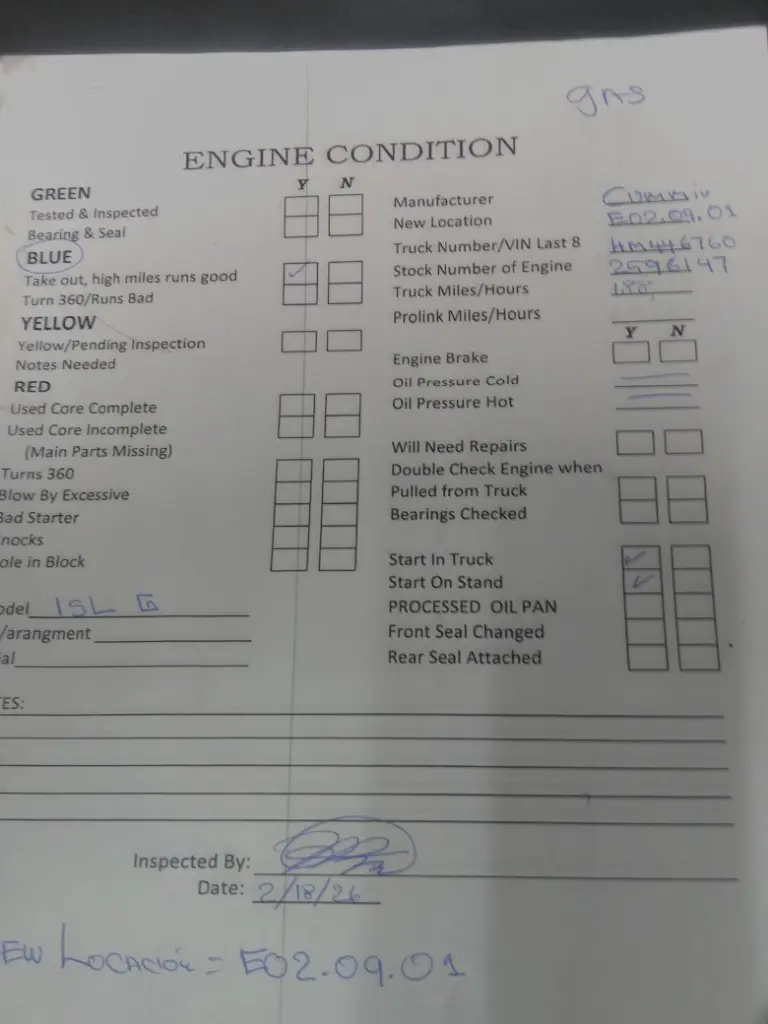 gas
ENGINE CONDITION
Y N
GREEN
Tested & Inspected
Bearing & Seal
BLUE
Take out, high miles runs good ✓
Turn 360/Runs Bad
YELLOW
Yellow/Pending Inspection
Notes Needed
RED
Used Core Complete
Used Core Incomplete
(Main Parts Missing)
Turns 360
Blow By Excessive
Bad Starter
nocks
ole in Block
odel ISL G
/arangment
ial
Manufacturer
New Location E02.09.01
Truck Number/VIN Last 8 HM446760
Stock Number of Engine 2596147
Truck Miles/Hours
Prolink Miles/Hours
Y N
Engine Brake
Oil Pressure Cold
Oil Pressure Hot
Will Need Repairs
Double Check Engine when
Pulled from Truck
Bearings Checked
Start In Truck ✓
Start On Stand ✓
PROCESSED OIL PAN
Front Seal Changed
Rear Seal Attached
TES:
Inspected By:
Date: 2/18/26
EW LOCACIÓN = E02.09.01